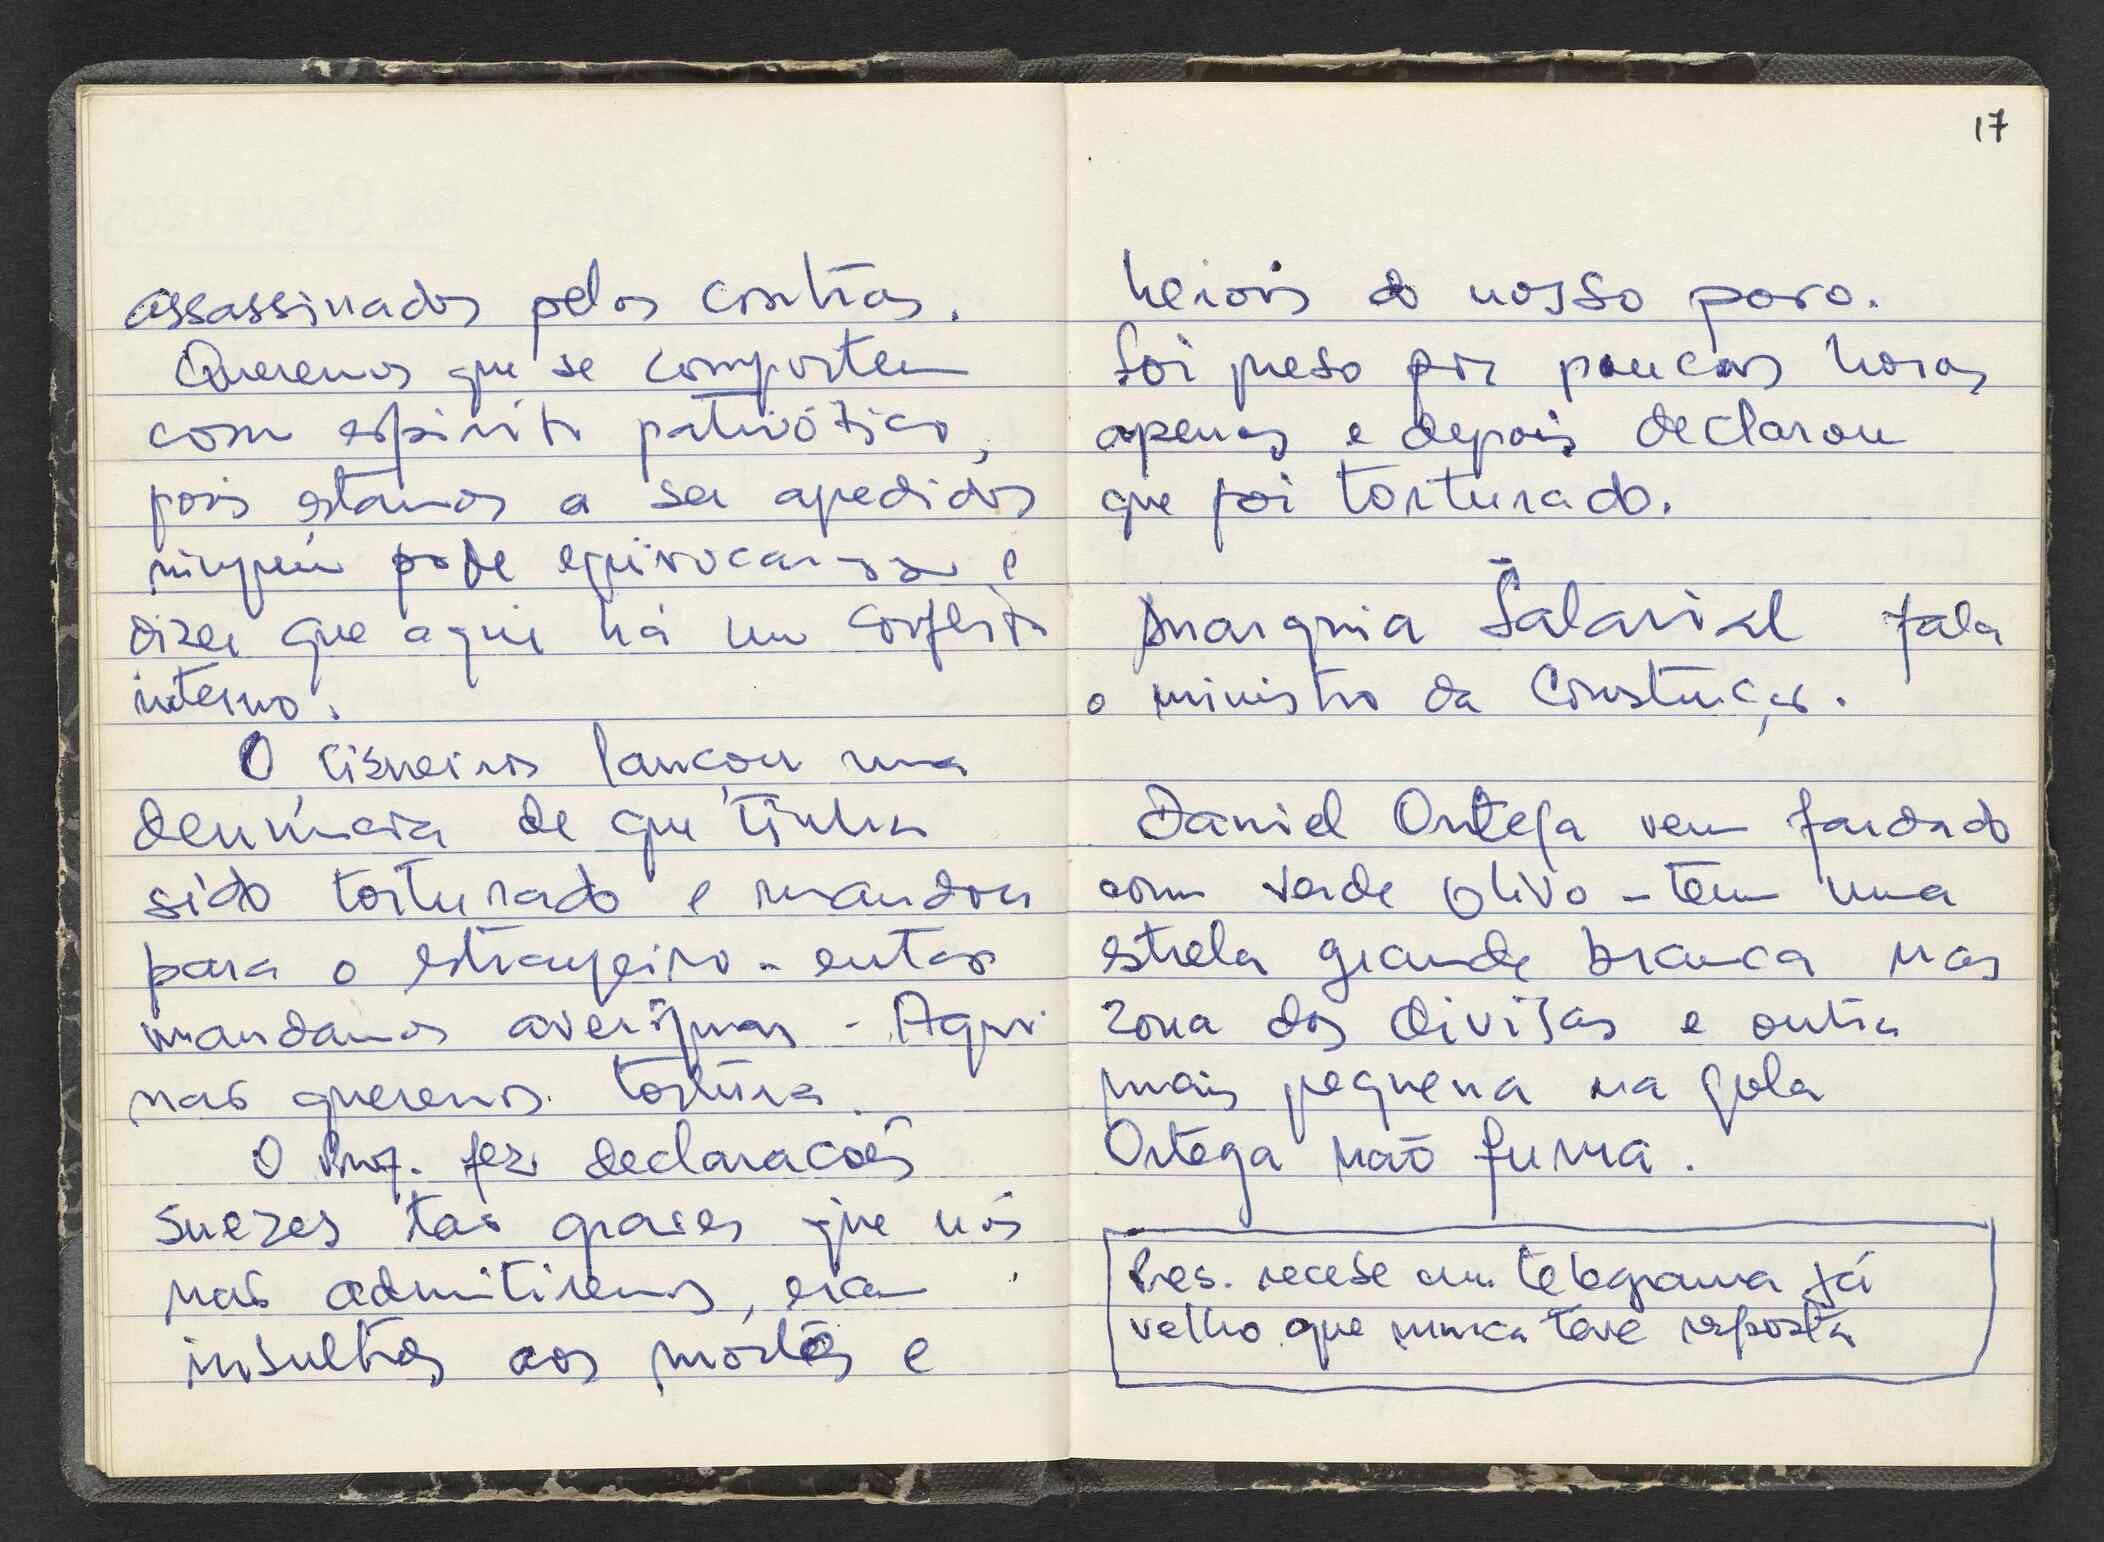 assassinados pelos contras.
Queremos que se comportem
com espirito patriótico,
pois estamos a ser
ninguém pode equivocar-se e
dizer que aqui há um conflito
interno.
O Cisneiros lançou uma
denúncia de que tinha
sido torturado e mandou
para o estrangeiro - entao
mandamos averiguar - Aqui
nao queremos tortura.
O fez declaracoes
suezes tao graves que nós
nao admitiremos, eram
insultos aos mortos e
17
herois do nosso povo.
Foi preso por poucas horas
apenas e depois declarou
que foi torturado.
Anarquia Salarial fala
o ministro da Construçao.
Daniel Ortega vem fardado
com verde olivo - tem uma
estrela grande branca nas
zona das divisas e outra
mais pequena na gola
Ortega não fuma.
Pres. recebe um telegrama já
velho que nunca teve resposta